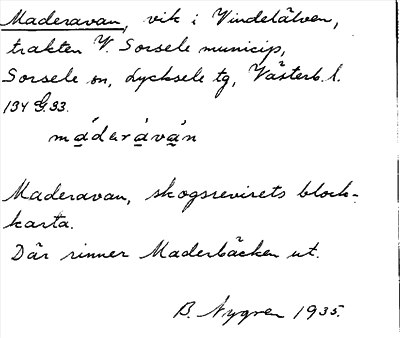 Maderavan, vik i Vindelälven,
trakten V. Sorsele municip,
Sorsele sn, Lycksele tg, Västerb. l.
134 G 33.
mád̲era̲v́a̲n
Maderavan, skogsrevirets block-
karta.
Där rinner Maderbäcken ut.
B. Nygren 1935.